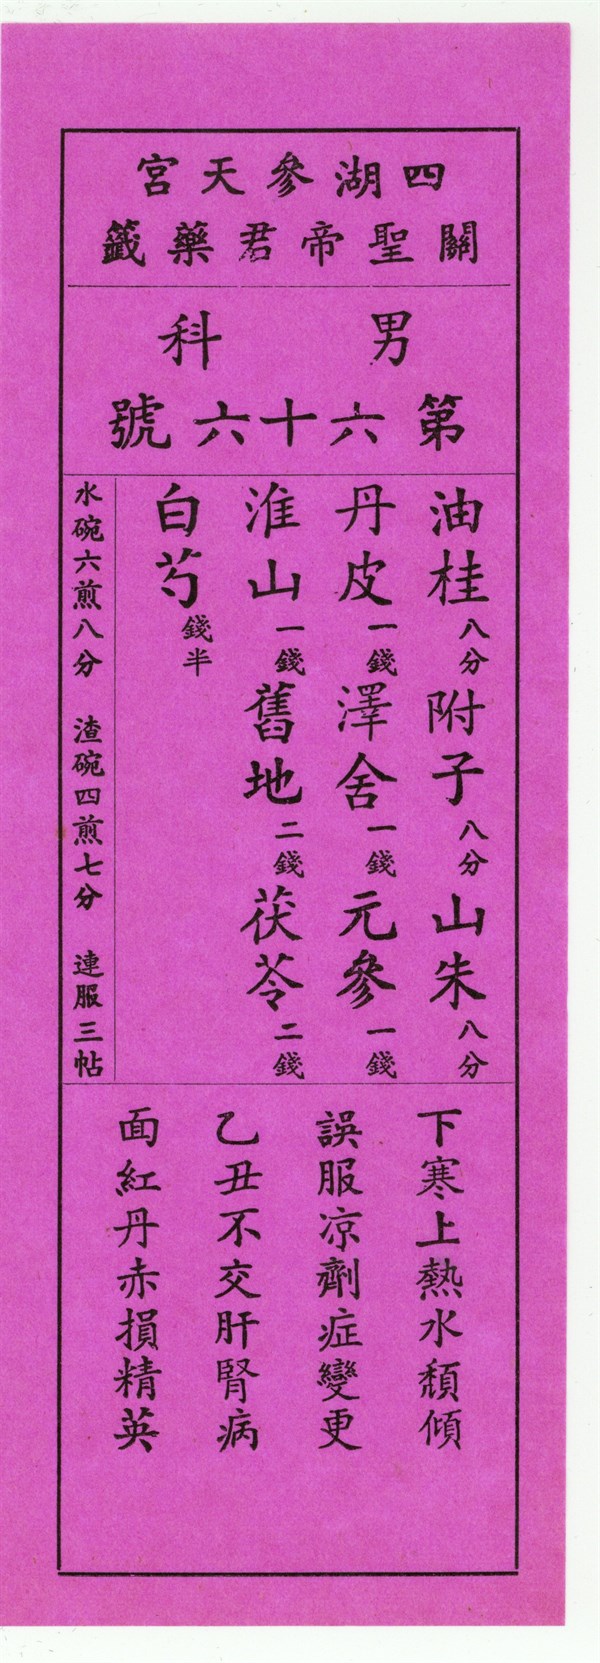 四湖參天宮
關聖帝君藥籤
男科
第六十六號
油桂八分 附子八分 山朱八分
丹皮一錢 澤舍一錢 元參一錢
淮山一錢 舊地二錢 茯苓二錢
白芍錢半
水碗六煎八分 渣碗四煎七分 連服三帖
下寒上熱水頹傾
誤服凉劑症變更
乙丑不交肝腎病
面紅丹赤損精英